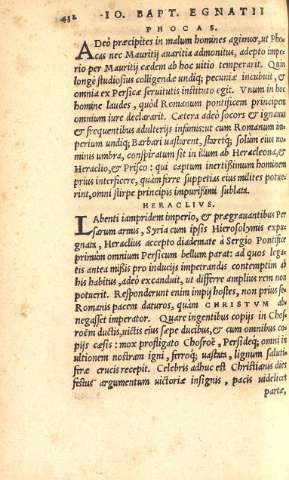 452 IO. BAPT. EGNATII
PHOCAS.
Adeo præcipites in malum homines agimur, ut Pho-
cas nec Mauritij auaritia admonitus, adepto impe-
rio per Mauritij cædem ab hoc uitio temperarit. Quin
longe studiosius colligendæ undiq; pecuniæ incubuit, &
omnia ex Persicæ seruitutis instituto egit. Vnum in hoc
homine laudes, quòd Romanum pontificem principem
omnium iure declararit. Cætera adeo socors & ignauus
& frequentibus adulterijs infamis: ut cum Romanum im-
perium undiq; Barbari uastarent, staretq; solum eius no-
minis umbra, conspiratum sit in illum ab Heracleona, &
Heraclio, & Prisco: qui captum inertissimum hominem
prius interficere, quàm ferre suppetias eius milites potue-
rint, omni stirpe principis impurissimi sublata.
HERACLIVS.
Labenti iampridem imperio, & prægrauantibus Per
sarum armis, Syria cum ipsis Hierosolymis expu-
gnata, Heraclius accepto diademate à Sergio Pontifice
primùm omnium Persicum bellum parat: ad quos lega-
tis antea missis pro inducijs impetrandis contemptim ab
his habitus, adeo excanduit, ut differre amplius rem non
potuerit. Responderunt enim impij hostes, non prius se
Romanis pacem daturos, quàm CHRISTVM ab-
negasset imperator. Quare ingentibus copijs in Chos-
roëm ductis, uictis eius sæpe ducibus, & cum omnibus co-
pijs cæsis: mox profligato Chosroë, Persideq; omni in
ultionem nostram igni, ferroq; uastata, lignum saluti-
feræ crucis recepit. Celebris adhuc est Christianis dies
festus argumentum uictoriæ insignis, pacis uidelicet
partæ,